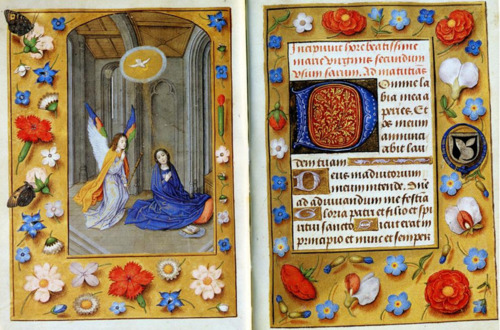 Incipiunt hore beatissime
marie virginis secundum
usum sarum. Ad matutinas
Domine la
bia mea a
peries. Et
os meum
annunci
abit lau
dem tuam
Deus in adiutorium
meum intende. Dne
ad adiuuandum me festina
Gloria patri et filio et spi
ritui sancto Sicut erat in
principio et nunc et semper